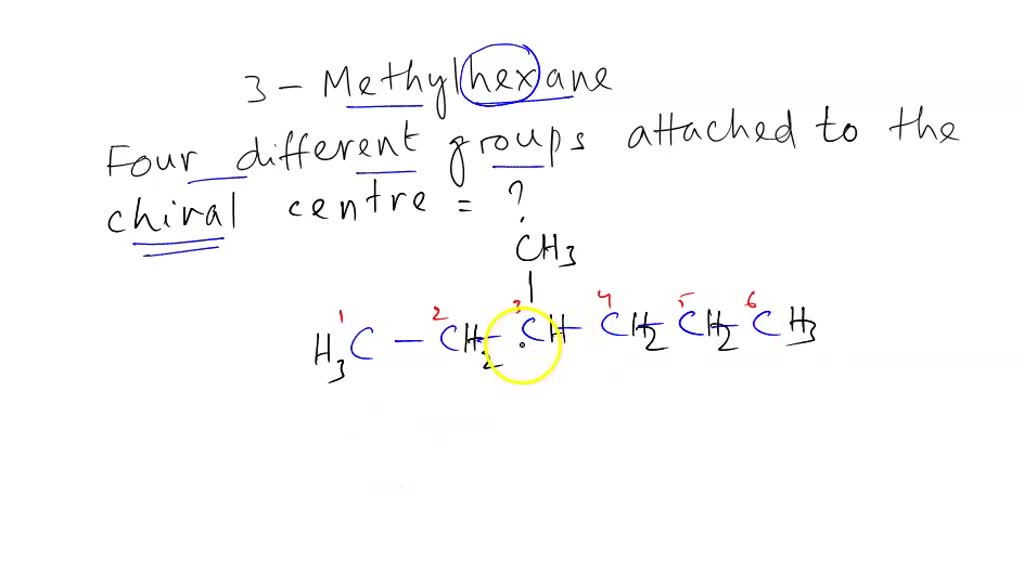 3 - Methylhexane
Four different groups attached to the
chiral centre = ?
CH3
1 2 3 4 5 6
H3C - CH2 - CH - CH2 - CH2 - CH3